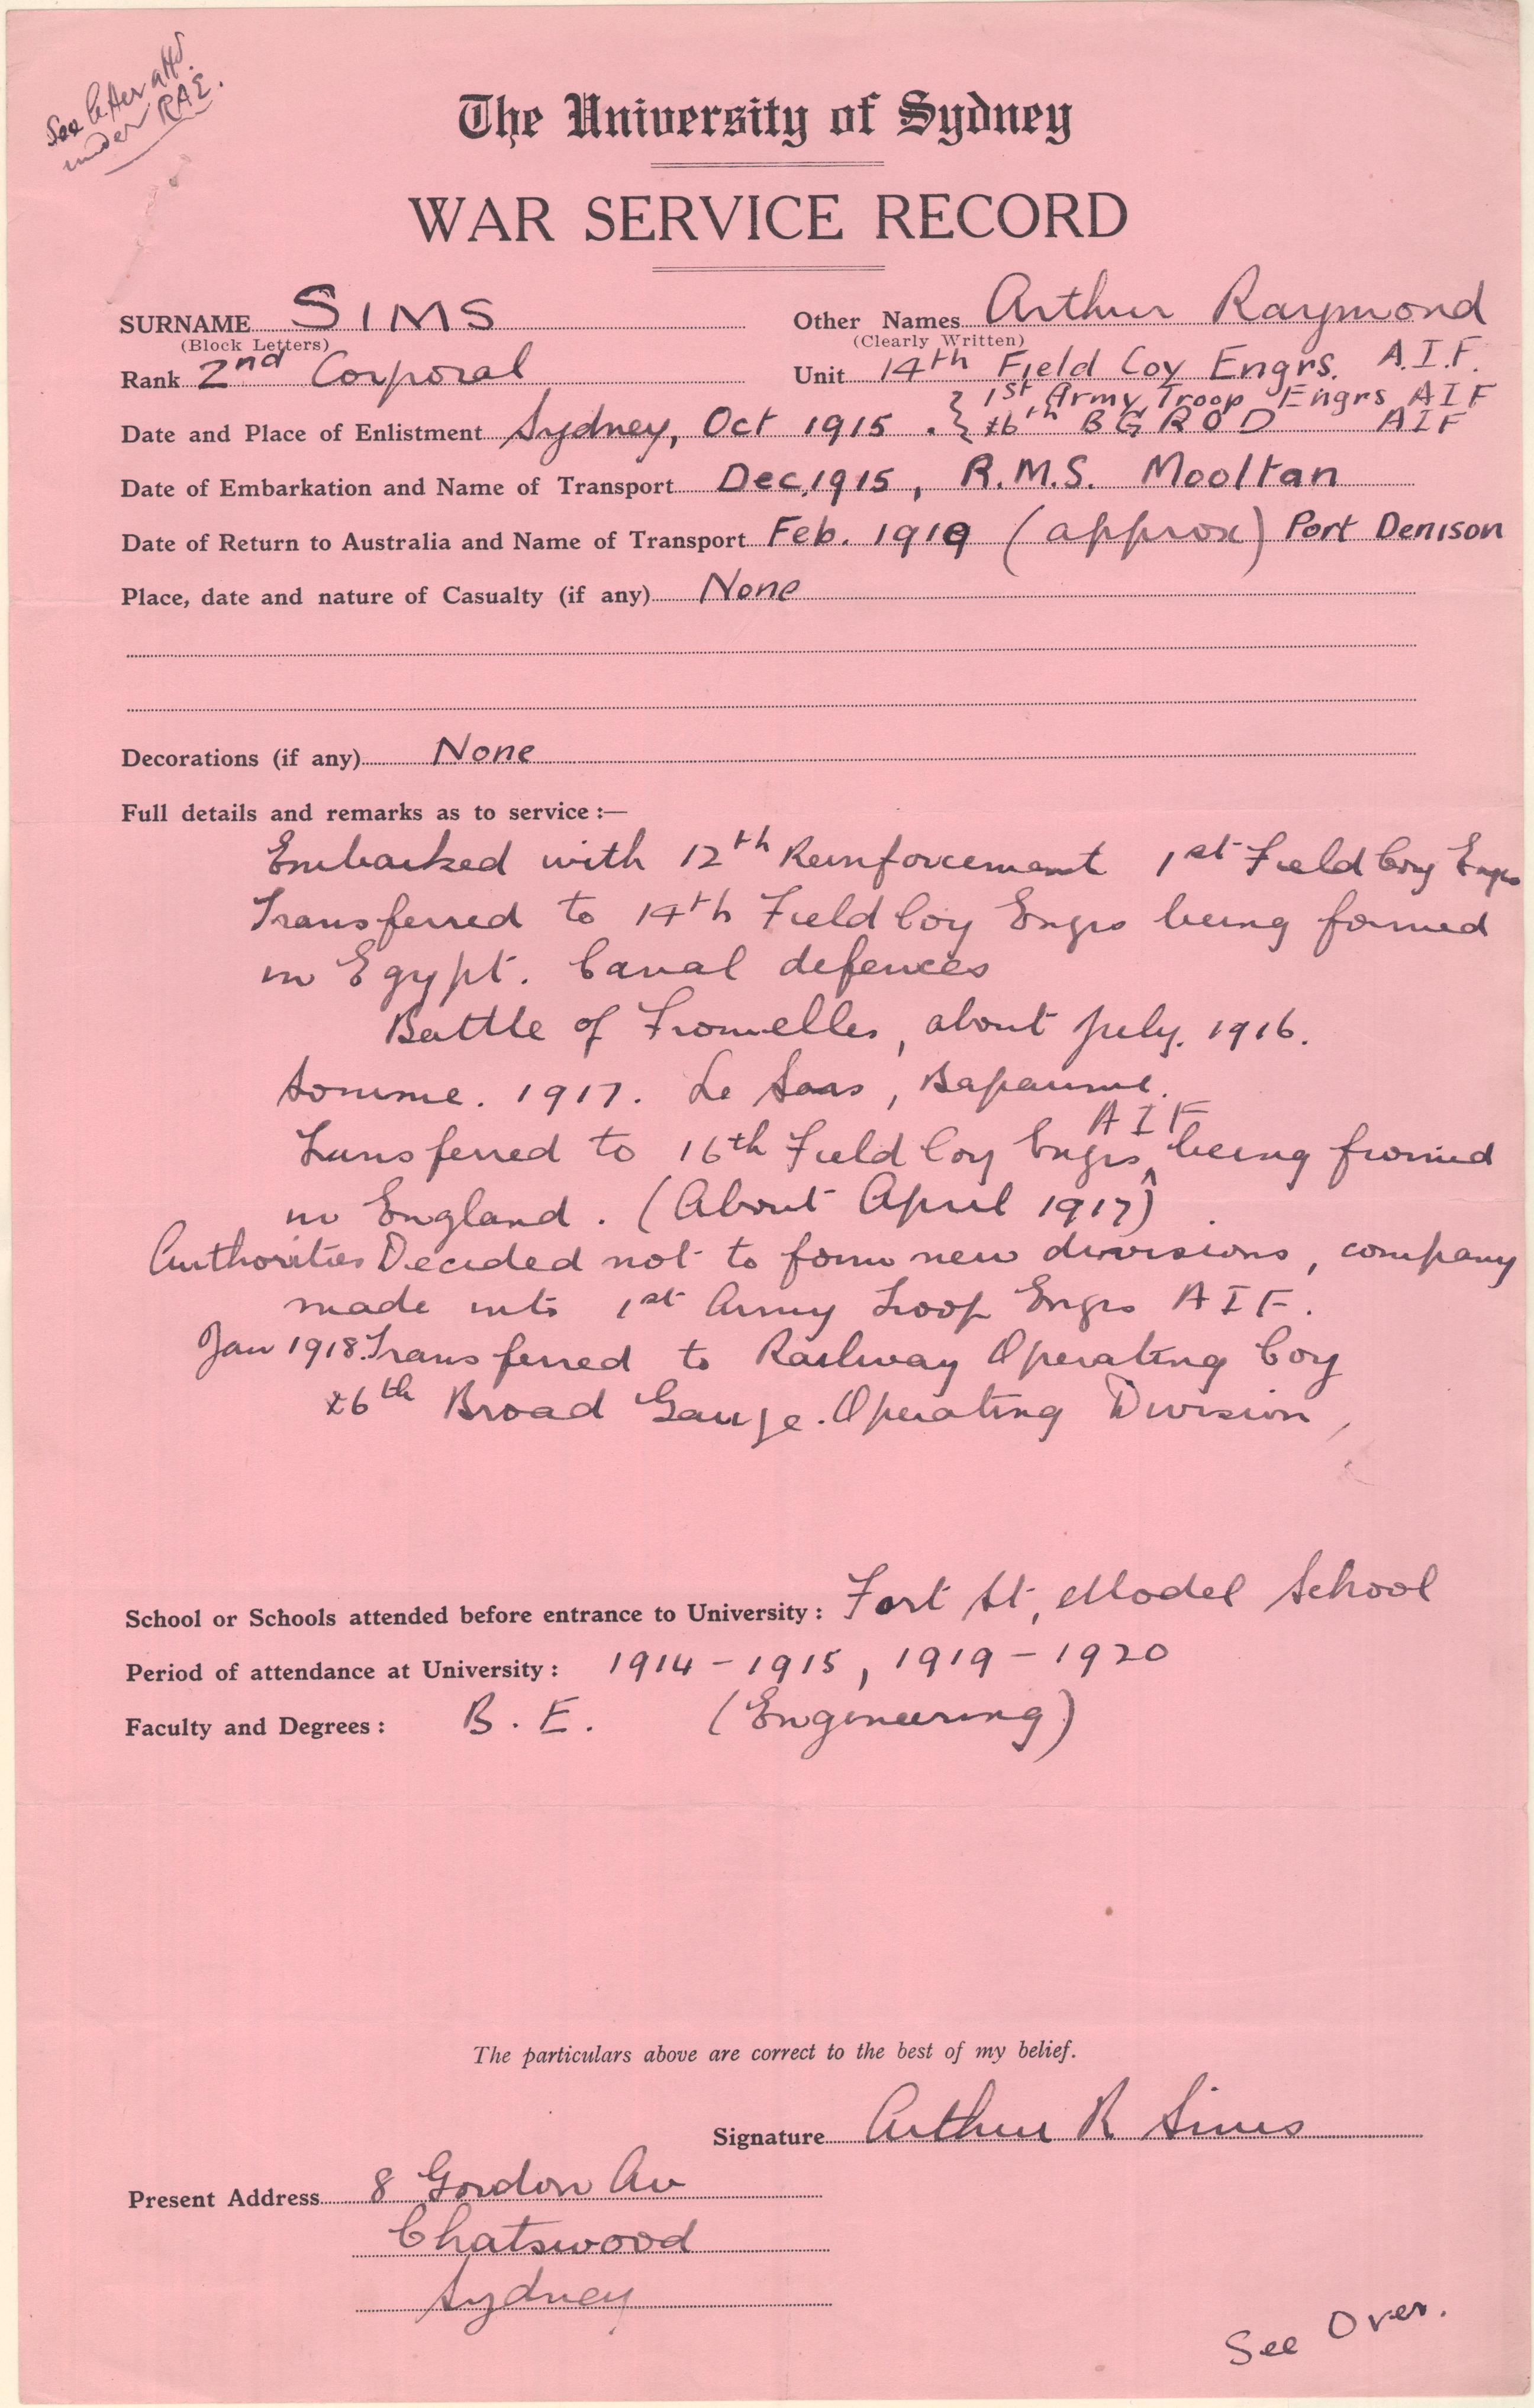 See letter attd.
under RAE.
The University of Sydney
WAR SERVICE RECORD
SURNAME SIMS Other Names Arthur Raymond
(Block Letters) (Clearly Written)
Rank 2nd Corporal Unit 14th Field Coy Engrs. A.I.F.
1st Army Troop Engrs AIF
Date and Place of Enlistment Sydney, Oct 1915 . 6th BGROD AIF
Date of Embarkation and Name of Transport Dec, 1915, R.M.S. Mooltan
Date of Return to Australia and Name of Transport Feb. 1919 (approx) Port Denison
Place, date and nature of Casualty (if any) None
Decorations (if any) None
Full details and remarks as to service :—
Embarked with 12th Reinforcement 1st Field Coy Engrs
Transferred to 14th Field Coy Engrs being formed
in Egypt. Canal defences
Battle of Fromelles, about July. 1916.
Somme. 1917. Le Sars, Bapaume.
AIF
Transferred to 16th Field Coy Engrs being formed
in England. (About April 1917) .
Authorities Decided not to form new divisions, company
made into 1st Army Troop Engrs AIF.
Jan 1918. Transferred to Railway Operating Coy
6th Broad Gauge. Operating Division,
School or Schools attended before entrance to University : Fort St, Model School
Period of attendance at University : 1914 - 1915, 1919 - 1920
Faculty and Degrees : B. E. (Engineering)
The particulars above are correct to the best of my belief.
Signature Arthur R Sims
Present Address 8 Gordon Av
Chatswood
Sydney
See Over.